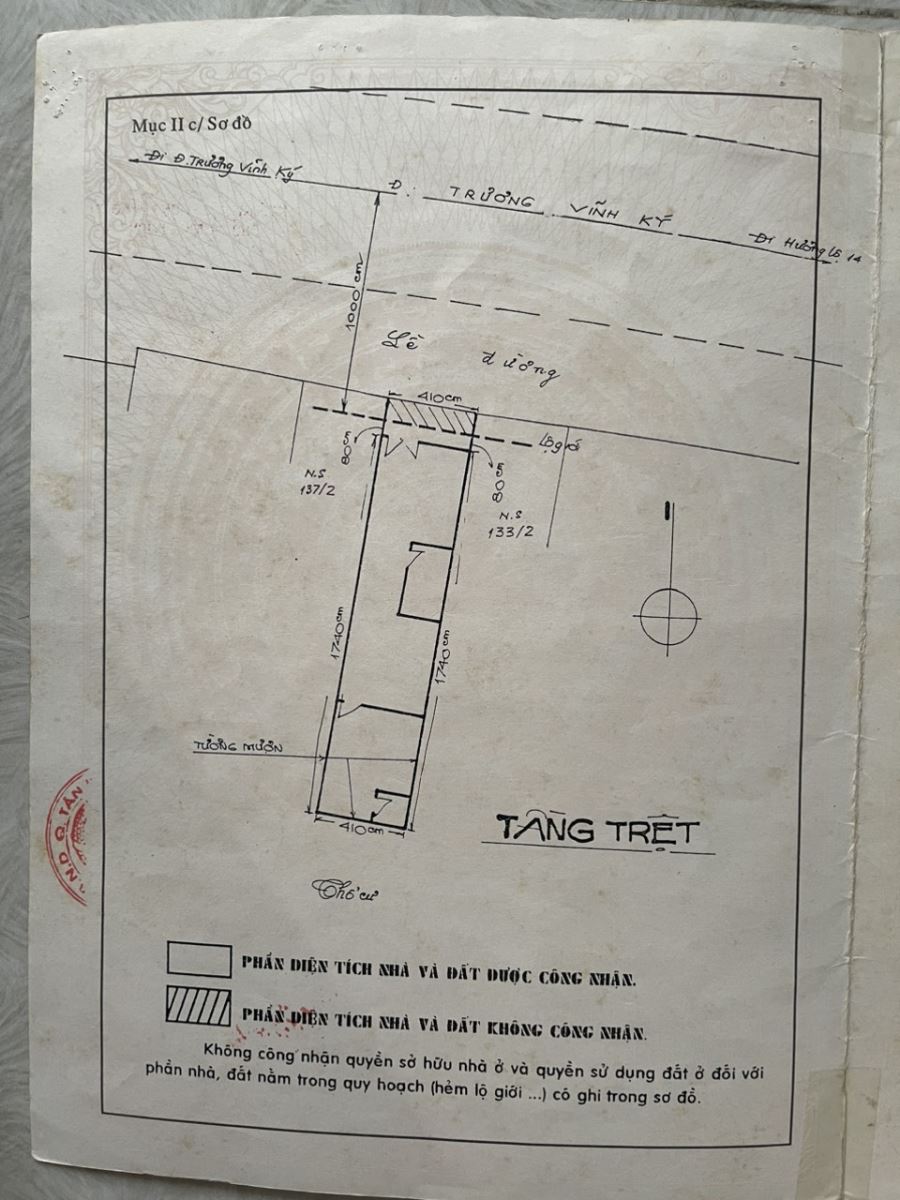 Mục II c/ Sơ đồ
Đi Đ. Trương Vĩnh Ký
Đ. TRƯƠNG VĨNH KÝ
Đi Hương Lộ 14
1000cm
Lề đường
410cm
Lộ giới
805
805
N.S
137/2
N.S
133/2
1740cm
1740cm
TƯỜNG MƯỢN
410cm
TẦNG TRỆT
Thổ cư
N.D Q. TÂN
PHẦN DIỆN TÍCH NHÀ VÀ ĐẤT ĐƯỢC CÔNG NHẬN.
PHẦN DIỆN TÍCH NHÀ VÀ ĐẤT KHÔNG CÔNG NHẬN.
Không công nhận quyền sở hữu nhà ở và quyền sử dụng đất ở đối với
phần nhà, đất nằm trong quy hoạch (hẻm lộ giới ...) có ghi trong sơ đồ.